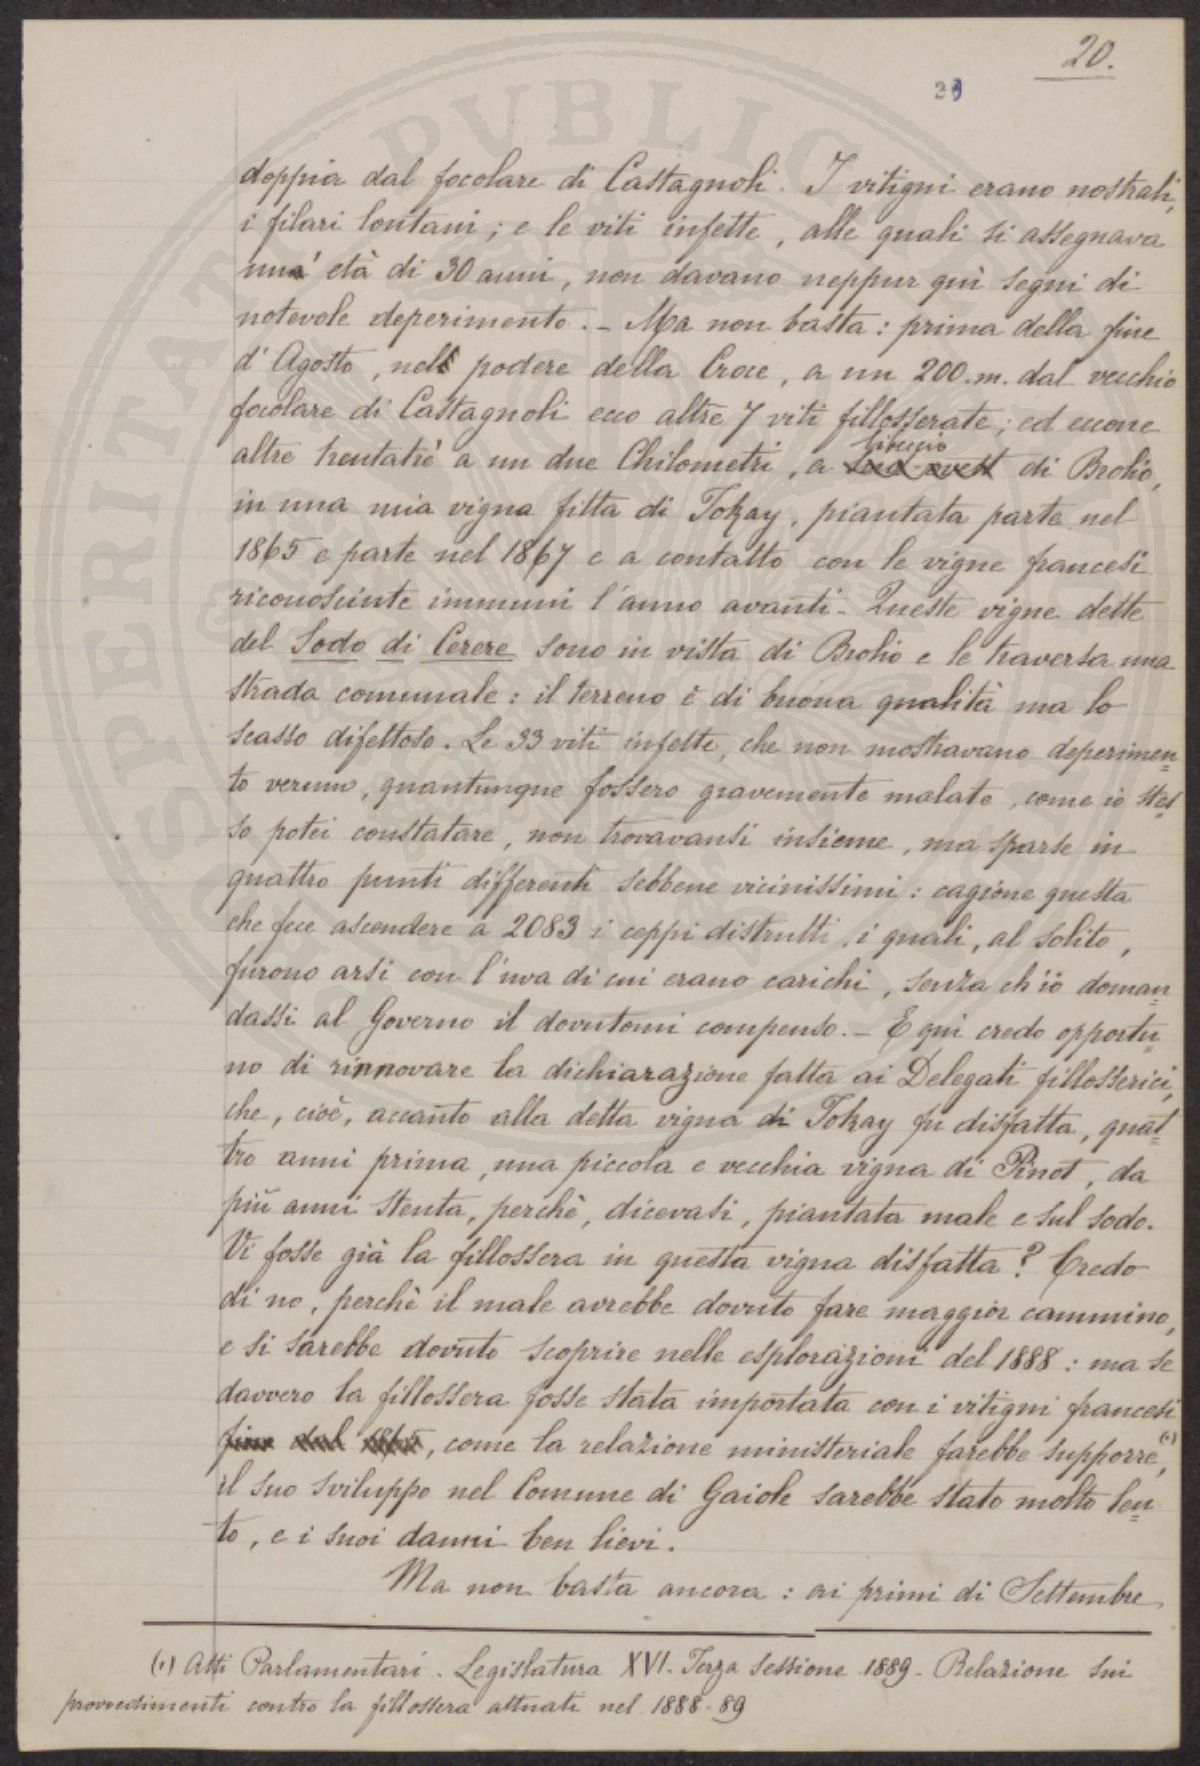 20.
doppia dal focolare di Castagnoli. I vitigni erano nostrali,
i filari lontani; e le viti infette, alle quali si assegnava
una' età di 30 anni, non davano neppur quì segni di
notevole deperimento. - Ma non basta: prima della fine
d'Agosto, nel podere della Croce, a un 200.m. dal vecchio
focolare di Castagnoli ecco altre 7 viti fillosserate; ed eccone
altre trentatrè a un due Chilometri, a libeccio di Brolio,
in una mia vigna fitta di Tokay, piantata parte nel
1865 e parte nel 1867 e a contatto con le vigne francesi
riconosciute immuni l'anno avanti - Queste vigne dette
del Sodo di Cerere sono in vista di Brolio e le traversa una
strada comunale: il terreno è di buona qualità ma lo
scasso difettoso. Le 33 viti infette, che non mostravano deperimen=
to veruno, quantunque fossero gravemente malate, come io stes=
so potei constatare, non trovavansi insieme, ma sparse in
quattro punti differenti sebbene vicinissimi: cagione questa
che fece ascendere a 2083 i ceppi distrutti, i quali, al solito,
furono arsi con l'uva di cui erano carichi, senza ch'io doman=
dassi al Governo il dovutomi compenso. - E qui credo opportu=
no di rinnovare la dichiarazione fatta ai Delegati fillosserici,
che, cioè, accanto alla detta vigna di Tokay fu disfatta, quat=
tro anni prima, una piccola e vecchia vigna di Pinot, da
più anni stenta, perchè, dicevasi, piantata male e sul sodo.
Vi fosse già la fillossera in questa vigna disfatta? Credo
di no, perchè il male avrebbe dovuto fare maggior cammino,
e si sarebbe dovuto scoprire nelle esplorazioni del 1888: ma se
davvero la fillossera fosse stata importata con i vitigni francesi
fino dal 1865, come la relazione ministeriale farebbe supporre,(1)
il suo sviluppo nel Comune di Gaiole sarebbe stato molto len=
to, e i suoi danni ben lievi.
Ma non basta ancora: ai primi di Settembre
(1) Atti Parlamentari - Legislatura XVI - Terza Sessione 1889 - Relazione sui
provvedimenti contro la fillossera attuati nel 1888-89